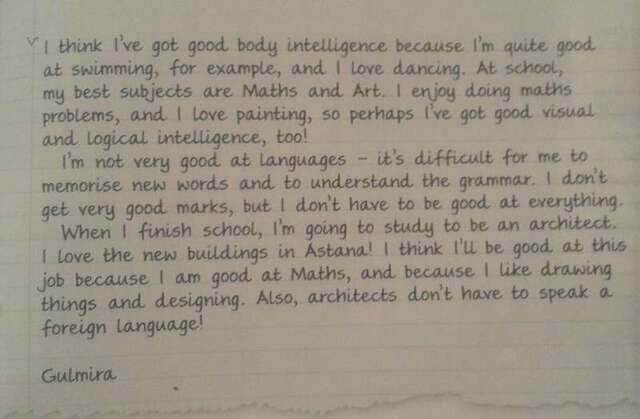 I think I've got good body intelligence because I'm quite good
at swimming, for example, and I love dancing. At school,
my best subjects are Maths and Art. I enjoy doing maths
problems, and I love painting, so perhaps I've got good visual
and logical intelligence, too!
I'm not very good at languages – it's difficult for me to
memorise new words and to understand the grammar. I don't
get very good marks, but I don't have to be good at everything.
When I finish school, I'm going to study to be an architect.
I love the new buildings in Astana! I think I'll be good at this
job because I am good at Maths, and because I like drawing
things and designing. Also, architects don't have to speak a
foreign language!
Gulmira